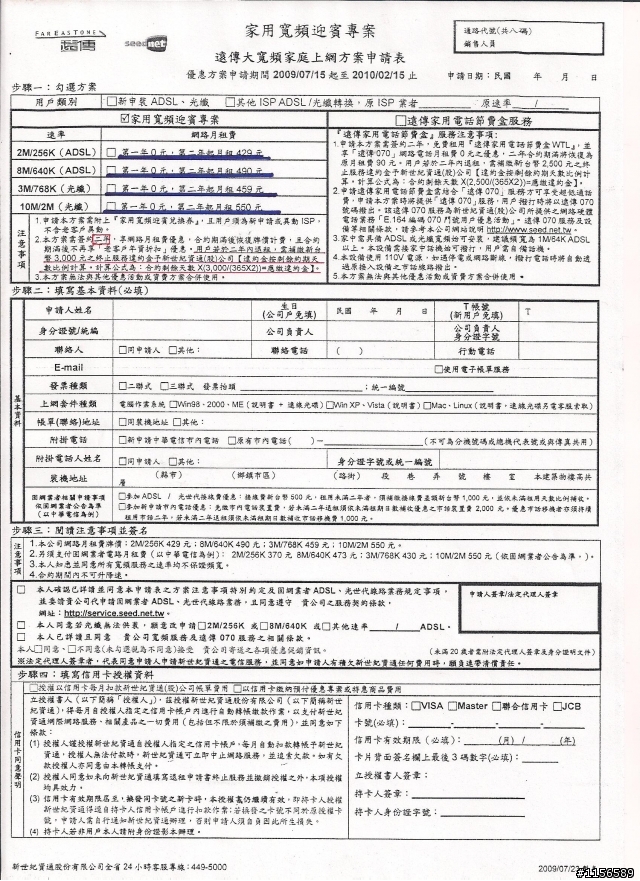 FAR EASTONE 遠傳 seednet
家用寬頻迎賓專案
遠傳大寬頻家庭上網方案申請表
優惠方案申請期間 2009/07/15 起至 2010/02/15 止
通路代號(共八碼)
銷售人員
申請日期:民國 年 月 日
步驟一:勾選方案
用戶類別 □新申裝 ADSL、光纖 □其他 ISP ADSL/光纖轉換,原 ISP 業者 原速率 /
☑家用寬頻迎賓專案
速率 網路月租費
2M/256K (ADSL) □第一年 0 元,第二年起月租 429 元
8M/640K (ADSL) □第一年 0 元,第二年起月租 490 元
3M/768K (光纖) □第一年 0 元,第二年起月租 459 元
10M/2M (光纖) □第一年 0 元,第二年起月租 550 元
注意事項
1.申請本方案需附上『家用寬頻迎賓兌換券』,且用戶須為新申請或異動 ISP,
不含老客戶異動。
2.本方案需簽約二年,享網路月租費優惠,合約期滿後恢復牌價計費,且合約
期滿後不再享"老客戶年資折扣"優惠。用戶若在二年內退租,需補繳新台
幣 3,000 元之終止服務違約金予新世紀資通(股)公司【違約金按剩餘約期天
數比例計算。計算公式為:合約剩餘天數 X(3,000/(365X2))=應繳違約金】。
3.本方案無法與其他優惠活動或資費方案合併使用。
□遠傳家用電話節費盒服務
『遠傳家用電話節費盒』服務注意事項:
1.申請本方案需簽約二年,免費租用『遠傳家用電話節費盒 WTL』,並
享『遠傳 070』網路電話月租費 0 元之優惠,二年合約期滿將恢復為
原月租費 90 元。用戶若於二年內退租,需補繳新台幣 2,500 元之終
止服務違約金予新世紀資通(股)公司【違約金按剩餘約期天數比例
計算,計算公式為:合約剩餘天數 X(2,500/(365X2))=應繳違約金】。
2.申請遠傳家用電話節費盒結合『遠傳 070』服務方可享受超低通話
費,申請本方案時將提供『遠傳 070』服務,用戶撥打時將以遠傳 070
號碼撥出。該遠傳 070 服務為新世紀資通(股)公司所提供之網路硬體
電話業務『E.164 編碼 070 用戶號碼網路電話用戶點心』。遠傳 070 服務及設
備等相關條款,請參考本公司網站說明 http://www.seed.net.tw。
3.家中需具備 ADSL 或光纖寬頻始可安裝,建議頻寬為 1M/64K ADSL
以上,本設備需接家中電話機始可撥打,用戶需自備話機。
4.本設備使用 110V 電源,如遇停電或網路斷線,撥打電話時將自動透
過原接入設備之市話線路撥出。
5.本方案無法與其他優惠活動或資費方案合併使用。
步驟二:填寫基本資料(必填)
基本資料
申請人姓名 生日 (公司戶免填) 民國 年 月 日 T 帳號 (新用戶免填) T
身分證號/統編 公司負責人 公司負責人身分證號
聯絡人 □同申請人 □其他: 聯絡電話 ( ) 行動電話
E-mail □使用電子帳單服務
發票種類 □二聯式 □三聯式 發票抬頭 ;統一編號
上網套件種類 電腦作業系統 □Win98、2000、ME(說明書 + 連線光碟) □Win XP、Vista(說明書) □Mac、Linux(說明書,連線光碟另需電客服索取)
帳單(聯絡)地址 □同裝機地址 □其他:
附掛電話 □新申請中華電信市內電話 □原有市內電話( )- (不可為分機號碼或總機代表號或與傳真共用)
附掛電話人姓名 □同申請人 □其他: 身分證字號或統一編號
裝機地址 (縣市) (鄉鎮市區) (路街) 段 巷 弄 號 樓 室 本建築物樓高共 層
固網業者相關申請事項 依固網業者公告為準 (以中華電信為例)
□參加 ADSL / 光世代接線費優惠:接線費新台幣 500 元,租用未滿二年者,須補繳接線費差額新台幣 1,000 元,並依未滿租用天數比例補收。
□參加新申請市內電話優惠:免繳市內電話裝置費,若未滿二年退租須依未滿租期日數補收優惠之市話裝置費 2,000 元。優惠市話移機者亦須持續
租用市話二年,若未滿二年退租須依未滿租期日數補收市話移機費 1,000 元。
步驟三:閱讀注意事項並簽名
注意事項
1.本公司網路月租費牌價:2M/256K 429 元;8M/640K 490 元;3M/768K 459 元;10M/2M 550 元。
2.另須支付固網業者電路月租費(以中華電信為例):2M/256K 370 元 8M/640K 473 元;3M/768K 430 元;10M/2M 550 元(依固網業者公告為準。)。
3.本人知悉並同意所有寬頻服務之速率均不保證頻寬。
4.合約期間內不可升降速。
□ 本人確認已詳讀並同意本申請表之方案注意事項特別約定及固網業者 ADSL、光世代線路業務規定事項,
並委請貴公司代申請固網業者 ADSL、光世代線路業務,且同意遵守 貴公司之服務契約條款,
網址:http://service.seed.net.tw。
□ 本人同意若光纖無法供裝,願意改申請 □2M/256K 或□8M/640K 或□其他速率 / ADSL。
□ 本人已詳讀且同意 貴公司寬頻服務及遠傳 070 服務之相關條款。
本人□同意、□不同意(未勾選視為不同意)接受 貴公司寄送之各項優惠促銷資訊。
申請人簽章/法定代理人簽章
(未滿 20 歲者需附法定代理人簽章及身分證明文件)
※法定代理人簽章者,代表同意申請人申請新世紀資通之電信服務,並同意如申請人有積欠新世紀資通任何費用時,願負連帶清償責任。
步驟四:填寫信用卡授權資料
信用卡同意聲明
□授權以信用卡每月扣款新世紀資通(股)公司帳單費用 □以信用卡繳納預付優惠專案或特惠商品費用
立授權書人(以下簡稱「授權人」),茲授權新世紀資通股份有限公司(以下簡稱新世
紀資通),得每月自授權人指定之信用卡帳戶內進行自動轉帳繳款作業,以支付新世紀
資通網際網路服務、相關產品之一切費用(包括但不限於須補繳之費用),並同意如下
條款:
(1) 授權人謹授權新世紀資通自授權人指定之信用卡帳戶,每月自動扣款轉帳予新世紀
資通,授權人無法付款時,新世紀資通可立即中止網路服務,並追索欠款。如有欠
款授權人亦同意由本轉帳支付。
(2) 授權人同意如未向新世紀資通填寫退租申請書終止服務並撤銷授權之外,本項授權
均具效力。
(3) 信用卡有效期限屆至,換發同卡號之新卡時,本授權書仍繼續有效,即持卡人授權
新世紀資通得逕自持卡人信用卡帳戶進行扣款作業;若換發之卡號不同於原授權卡
號,申請人需自行通知新世紀資通辦理,否則申請人須自負因此所生損失。
(4) 持卡人若非用戶本人請附身分證影本辦理。
信用卡種類:□VISA □Master □聯合信用卡 □JCB
卡號(必填): - - -
信用卡有效期限(必填): (月)/ (年)
卡片背面簽名欄上最後 3 碼數字(必填):
立授權書人簽章:
持卡人簽章:
持卡人身分證字號:
新世紀資通股份有限公司全省 24 小時客服專線:449-5000
2009/07/23
#1156589